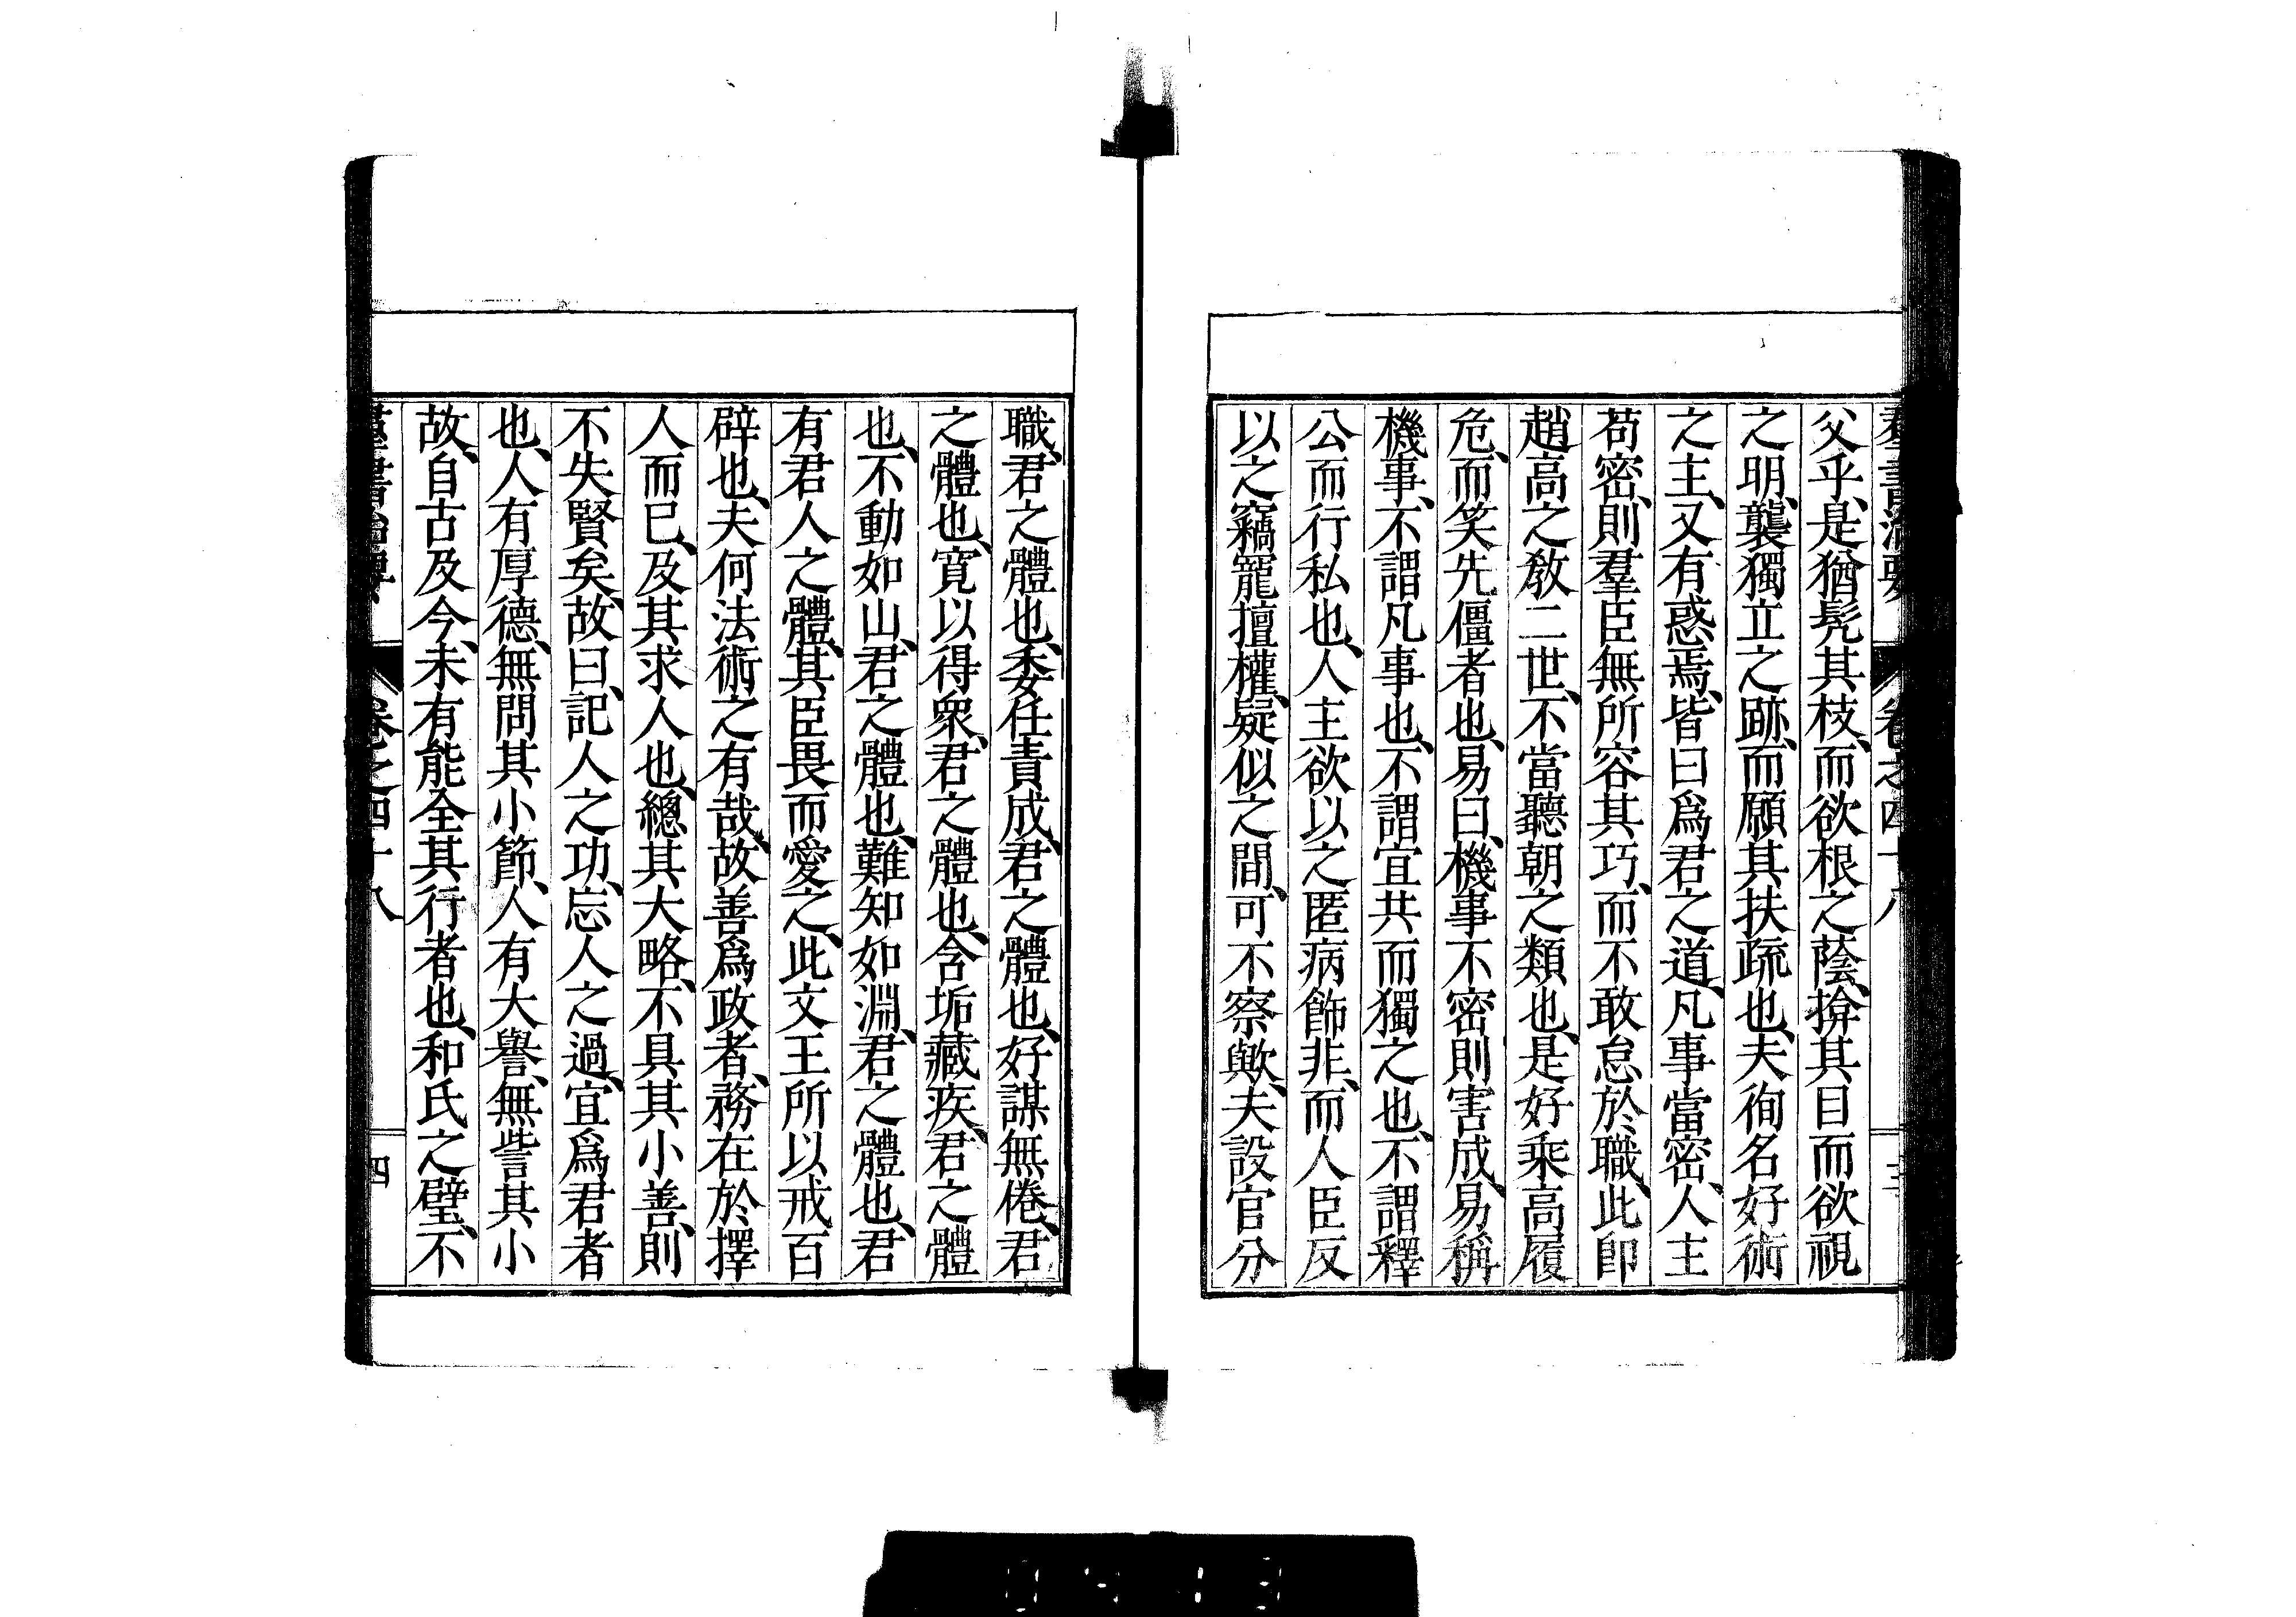 羣書治要 卷之四十八 三
父乎、是猶髠其枝、而欲根之蔭、揜其目而欲視
之明、襲獨立之跡、而願其扶疏也、夫徇名好術
之主、又有惑焉、皆曰爲君之道、凡事當密、人主
苟密、則羣臣無所容其巧、而不敢怠於職、此卽
趙高之敎二世、不當聽朝之類也、是好乘高履
危、而笑先僵者也、易曰、機事不密則害成、易稱
機事、不謂凡事也、不謂宜共而獨之也、不謂釋
公而行私也、人主欲以之匿病飾非、而人臣反
以之竊寵擅權、疑似之間、可不察歟、夫設官分
職、君之體也、委任責成、君之體也、好謀無倦、君
之體也、寬以得衆、君之體也、含垢藏疾、君之體
也、不動如山、君之體也、難知如淵、君之體也、君
有君人之體、其臣畏而愛之、此文王所以戒百
辟也、夫何法術之有哉、故善爲政者、務在於擇
人而已、及其求人也、總其大略、不具其小善、則
不失賢矣、故曰、記人之功、忘人之過、宜爲君者
也、人有厚德、無問其小節、人有大譽、無訾其小
故、自古及今、未有能全其行者也、和氏之璧、不
羣書治要 卷之四十八 四